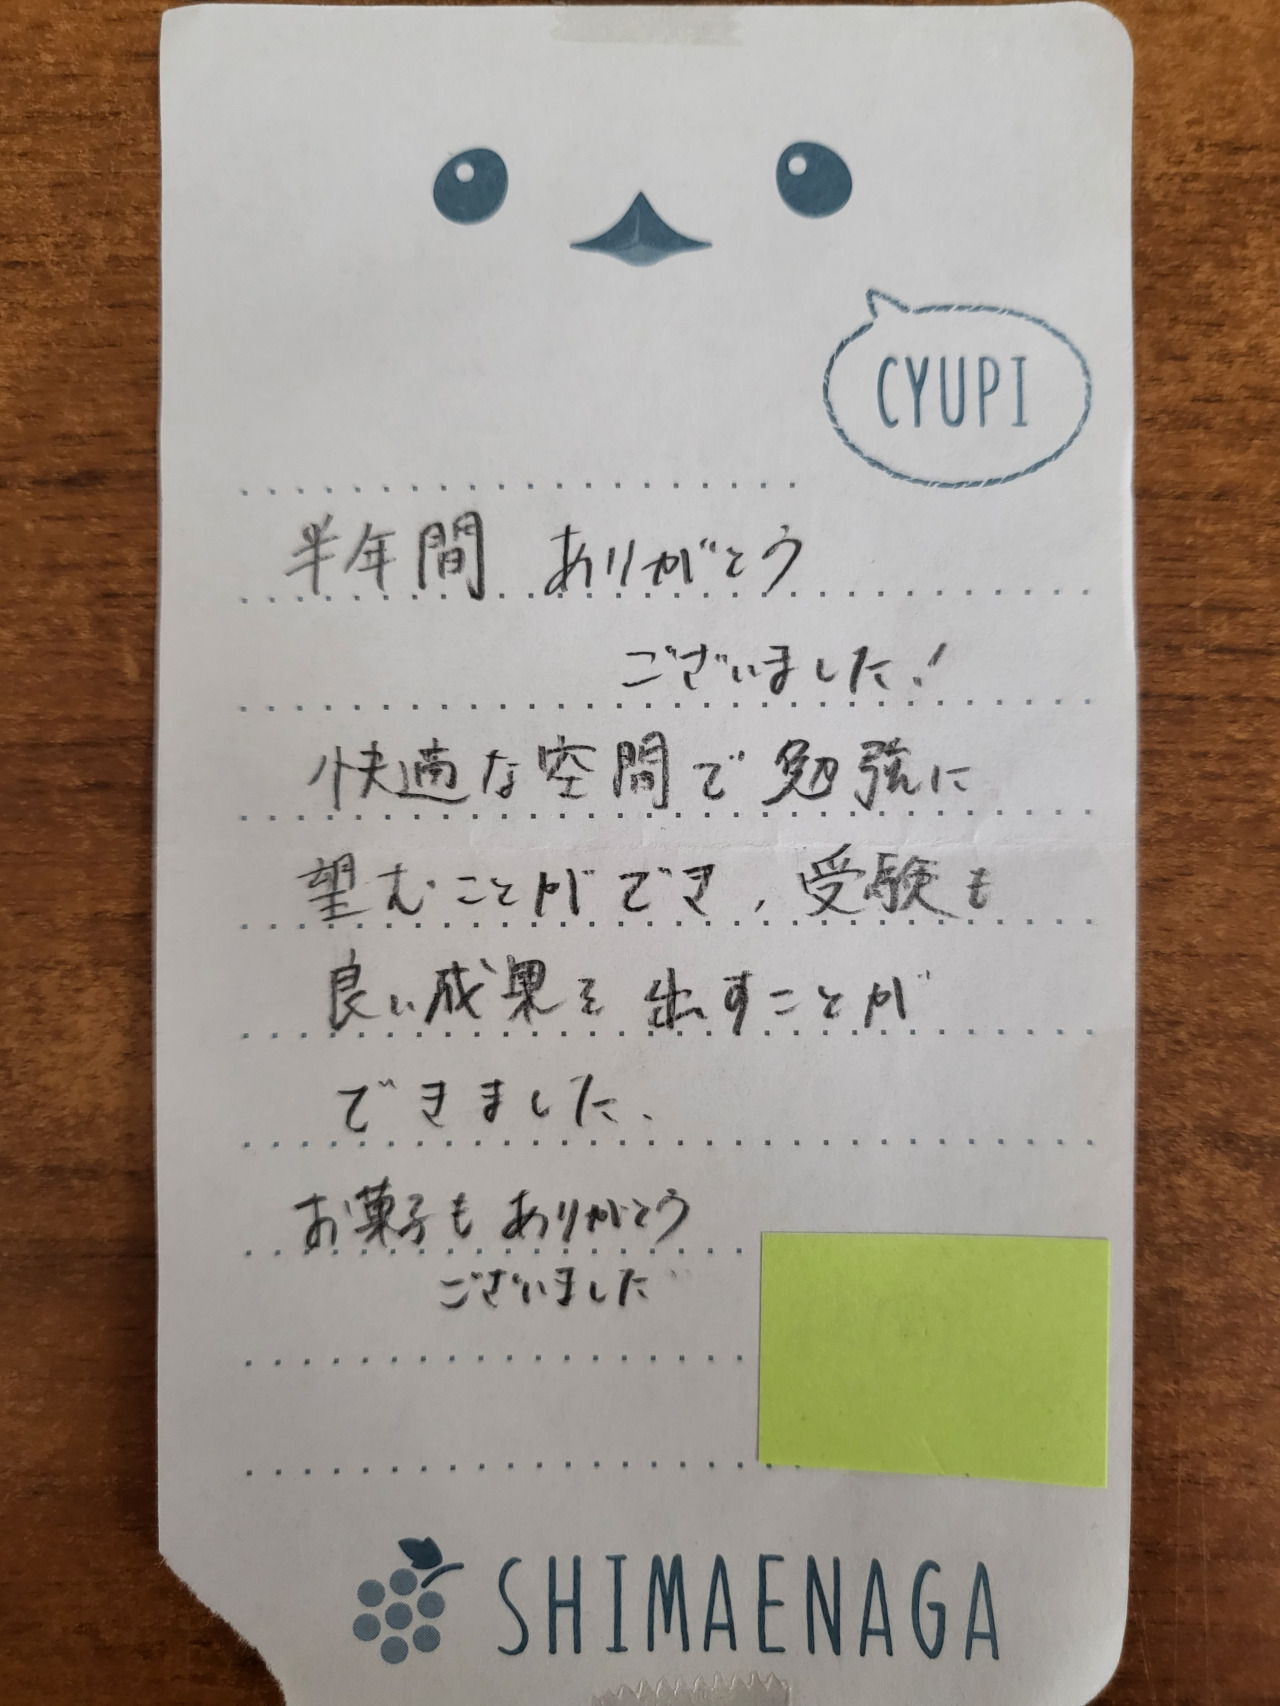 CYUPI
半年間 ありがとう
ございました!
快適な空間で勉強に
望むことができ、受験も
良い成果を出すことが
できました、
お菓子もありがとう
ございました
SHIMAENAGA